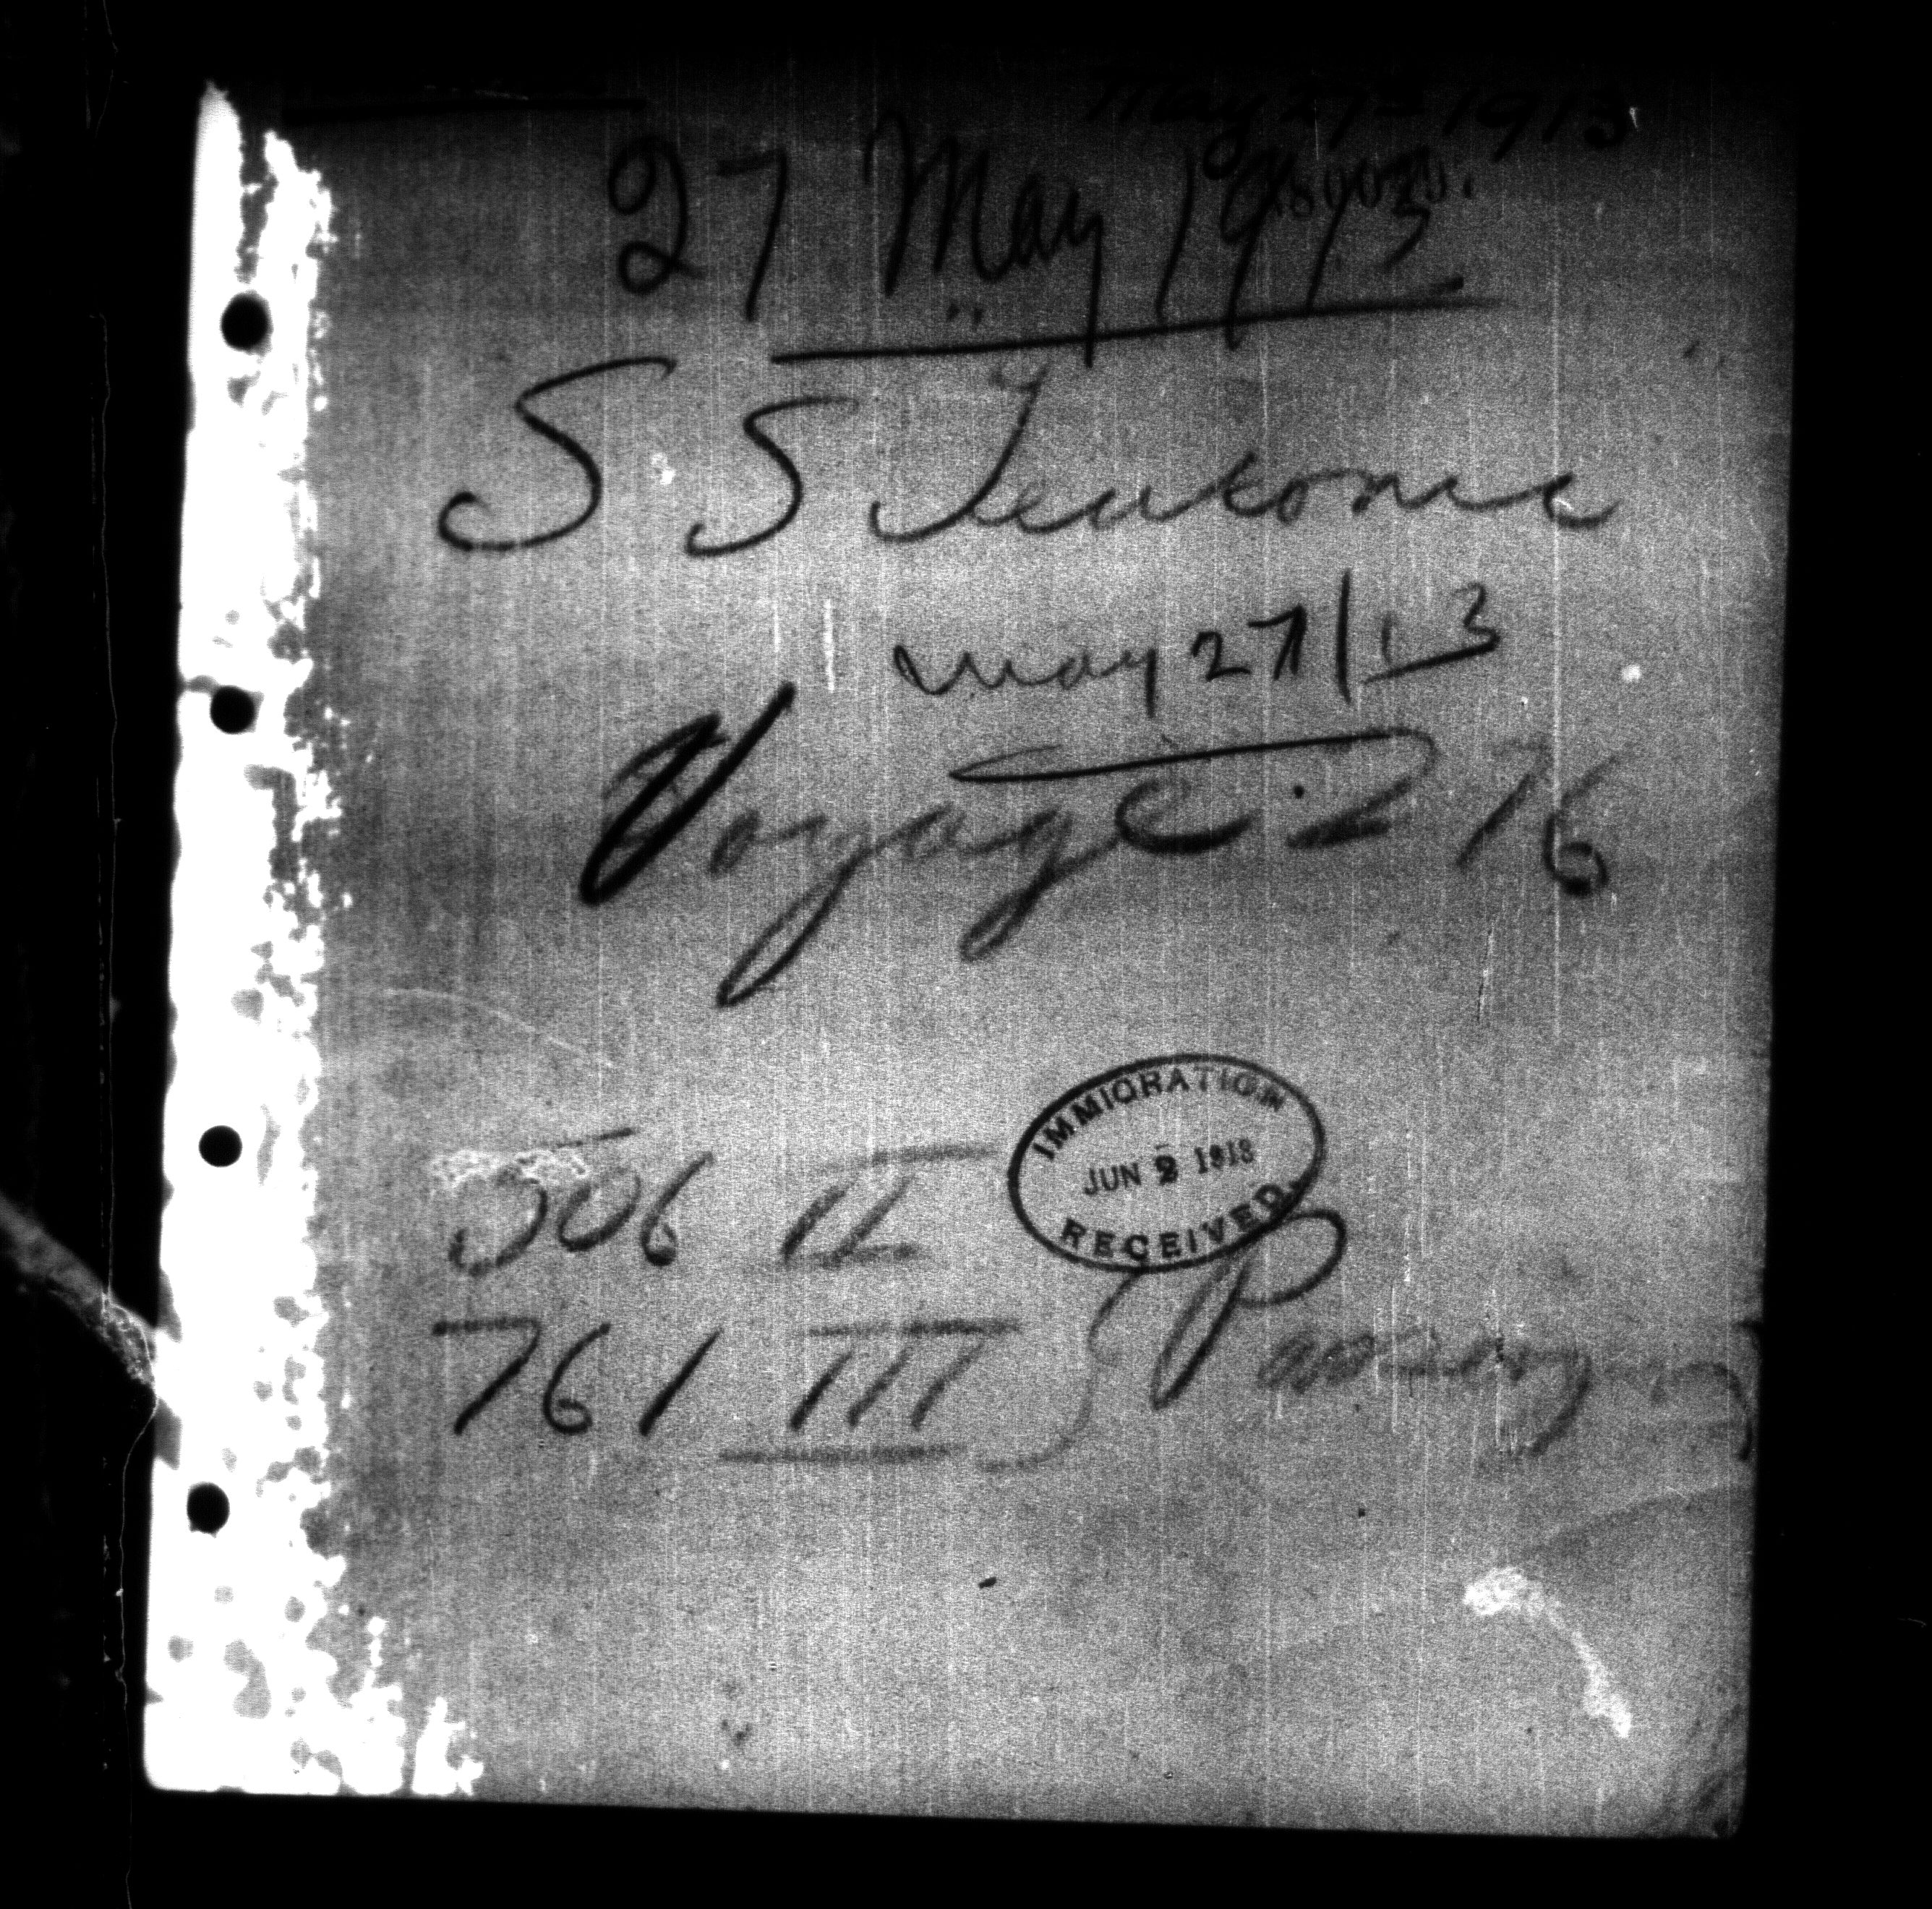 May 27th 1913
27 May 1913
S S Teutonic
May 27/13
Voyage 276
IMMIGRATION
JUN 2 1913
RECEIVED
506 II
761 III